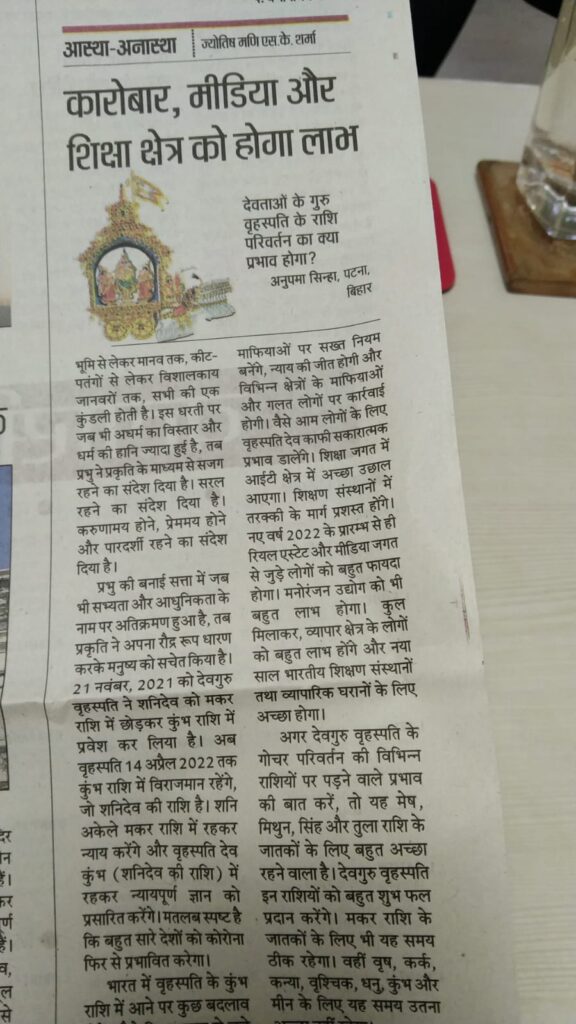 आस्था-अनास्था
ज्योतिष मणि एस.के. शर्मा
कारोबार, मीडिया और
शिक्षा क्षेत्र को होगा लाभ
देवताओं के गुरु
वृहस्पति के राशि
परिवर्तन का क्या
प्रभाव होगा?
अनुपमा सिन्हा, पटना,
बिहार
भूमि से लेकर मानव तक, कीट-
पतंगों से लेकर विशालकाय
जानवरों तक, सभी की एक
कुंडली होती है। इस धरती पर
जब भी अधर्म का विस्तार और
धर्म की हानि ज्यादा हुई है, तब
प्रभु ने प्रकृति के माध्यम से सजग
रहने का संदेश दिया है। सरल
रहने का संदेश दिया है।
करुणामय होने, प्रेममय होने
और पारदर्शी रहने का संदेश
दिया है।
प्रभु की बनाई सत्ता में जब
भी सभ्यता और आधुनिकता के
नाम पर अतिक्रमण हुआ है, तब
प्रकृति ने अपना रौद्र रूप धारण
करके मनुष्य को सचेत किया है।
21 नवंबर, 2021 को देवगुरु
वृहस्पति ने शनिदेव को मकर
राशि में छोड़कर कुंभ राशि में
प्रवेश कर लिया है। अब
वृहस्पति 14 अप्रैल 2022 तक
कुंभ राशि में विराजमान रहेंगे,
जो शनिदेव की राशि है। शनि
अकेले मकर राशि में रहकर
न्याय करेंगे और वृहस्पति देव
कुंभ (शनिदेव की राशि) में
रहकर न्यायपूर्ण ज्ञान को
प्रसारित करेंगे। मतलब स्पष्ट है
कि बहुत सारे देशों को कोरोना
फिर से प्रभावित करेगा।
भारत में वृहस्पति के कुंभ
राशि में आने पर कुछ बदलाव
माफियाओं पर सख्त नियम
बनेंगे, न्याय की जीत होगी और
विभिन्न क्षेत्रों के माफियाओं
और गलत लोगों पर कार्रवाई
होगी। वैसे आम लोगों के लिए
वृहस्पति देव काफी सकारात्मक
प्रभाव डालेंगे। शिक्षा जगत में
आईटी क्षेत्र में अच्छा उछाल
आएगा। शिक्षण संस्थानों में
तरक्की के मार्ग प्रशस्त होंगे।
नए वर्ष 2022 के प्रारम्भ से ही
रियल एस्टेट और मीडिया जगत
से जुड़े लोगों को बहुत फायदा
होगा। मनोरंजन उद्योग को भी
बहुत लाभ होगा। कुल
मिलाकर, व्यापार क्षेत्र के लोगों
को बहुत लाभ होंगे और नया
साल भारतीय शिक्षण संस्थानों
तथा व्यापारिक घरानों के लिए
अच्छा होगा।
अगर देवगुरु वृहस्पति के
गोचर परिवर्तन की विभिन्न
राशियों पर पड़ने वाले प्रभाव
की बात करें, तो यह मेष,
मिथुन, सिंह और तुला राशि के
जातकों के लिए बहुत अच्छा
रहने वाला है। देवगुरु वृहस्पति
इन राशियों को बहुत शुभ फल
प्रदान करेंगे। मकर राशि के
जातकों के लिए भी यह समय
ठीक रहेगा। वहीं वृष, कर्क,
कन्या, वृश्चिक, धनु, कुंभ और
मीन के लिए यह समय उतना